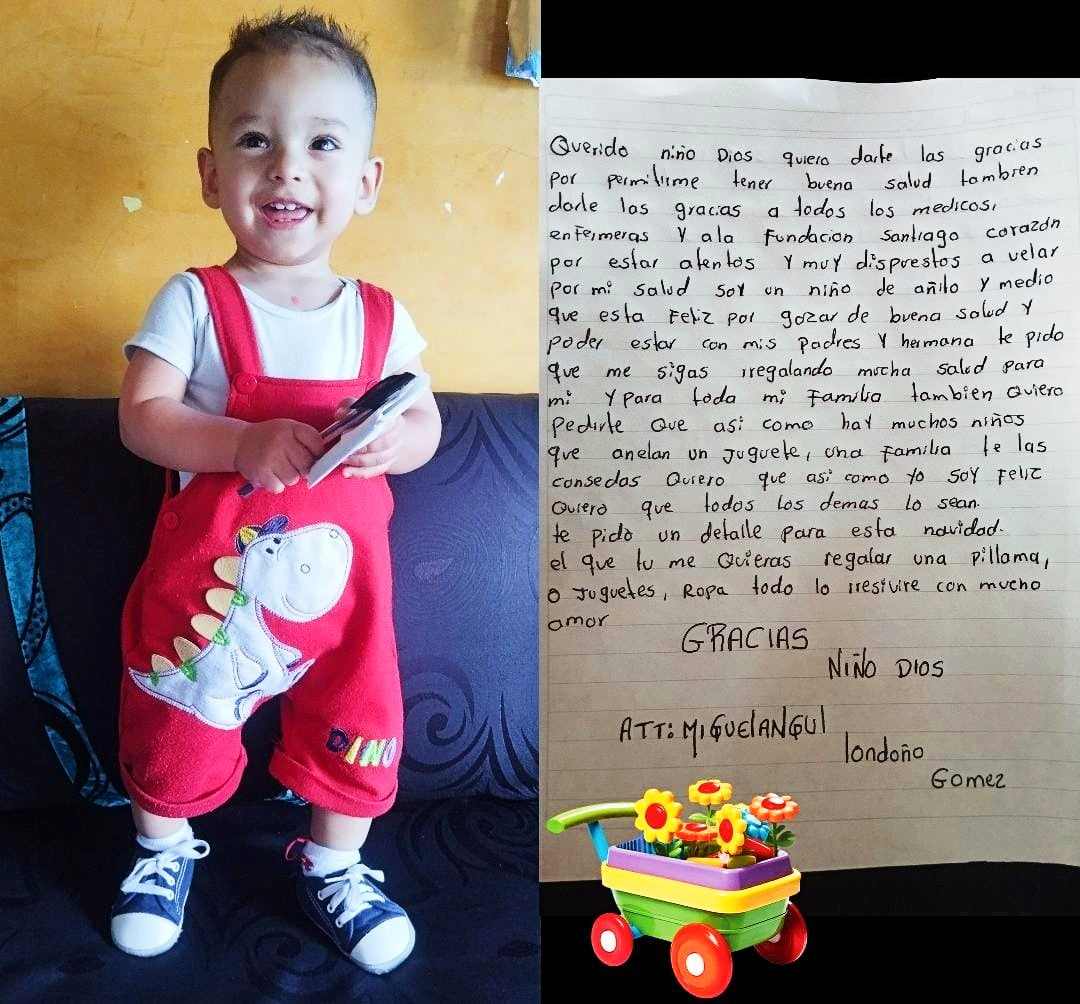 DINO
Querido niño Dios quiero darte las gracias
por permitirme tener buena salud tambien
darle las gracias a todos los medicos,
enfermeras y ala Fundacion Santiago corazón
por estar atentos y muy dispuestos a velar
por mi salud soy un niño de añito y medio
que esta Feliz por gozar de buena salud y
poder estar con mis padres y hermana te pido
que me sigas rregalando mucha salud para
mi y para toda mi Familia tambien Quiero
pedirte que asi como hay muchos niños
que anelan un juguete, una Familia te las
consedas Quiero que asi como yo soy Feliz
Quiero que todos los demas lo sean.
te pido un detalle para esta navidad.
el que tu me Quieras regalar una pillama,
o juguetes, Ropa todo lo rresivire con mucho
amor
GRACIAS
NIÑO DIOS
ATT: MIGUElANGUl
londoño
Gomez